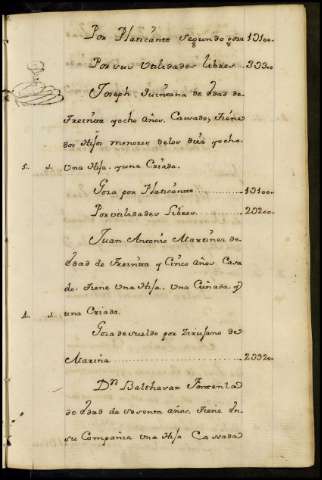 Por Platicante segundo goza 1310..
Por sus Utilidades libres 3300
Joseph Quintana de Edad de
Treinta y ocho años, Casado, tiene
dos Hijos menores de los diez y ocho.
5. .. Una Hija. y una Criada.
Goza por Platicante 1310..
Por utilidades Libres. 2020..
Juan Antonio Martinez de
Edad de Treinta y Cinco años Casa
do. tiene Una Hija. Una Cuñada, y
4. .. una Criada.
Goza de sueldo por Zirujano de
Marina 2032..
Dn. Balthasar
de Edad de sesenta años. tiene En
su Compañia Una Hija Cassada